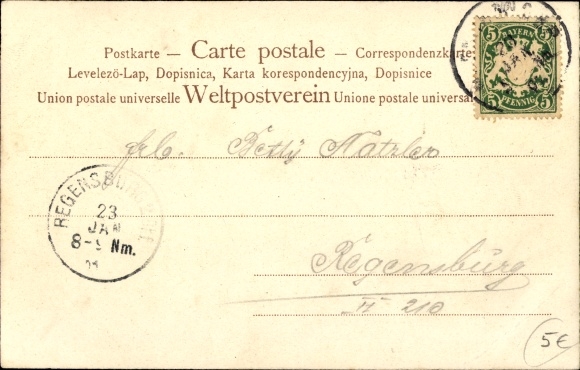 Postkarte — Carte postale — Correspondenzkarte
Levelező-Lap, Dopisnica, Karta korespondencyjna, Dopisnice
Union postale universelle Weltpostverein Unione postale universal
5 BAYERN 5
5 PFENNIG 5
Frl. Betty Natzler
REGENSBURG
23
JAN
8-9 Nm.
Regensburg
H 210
5€